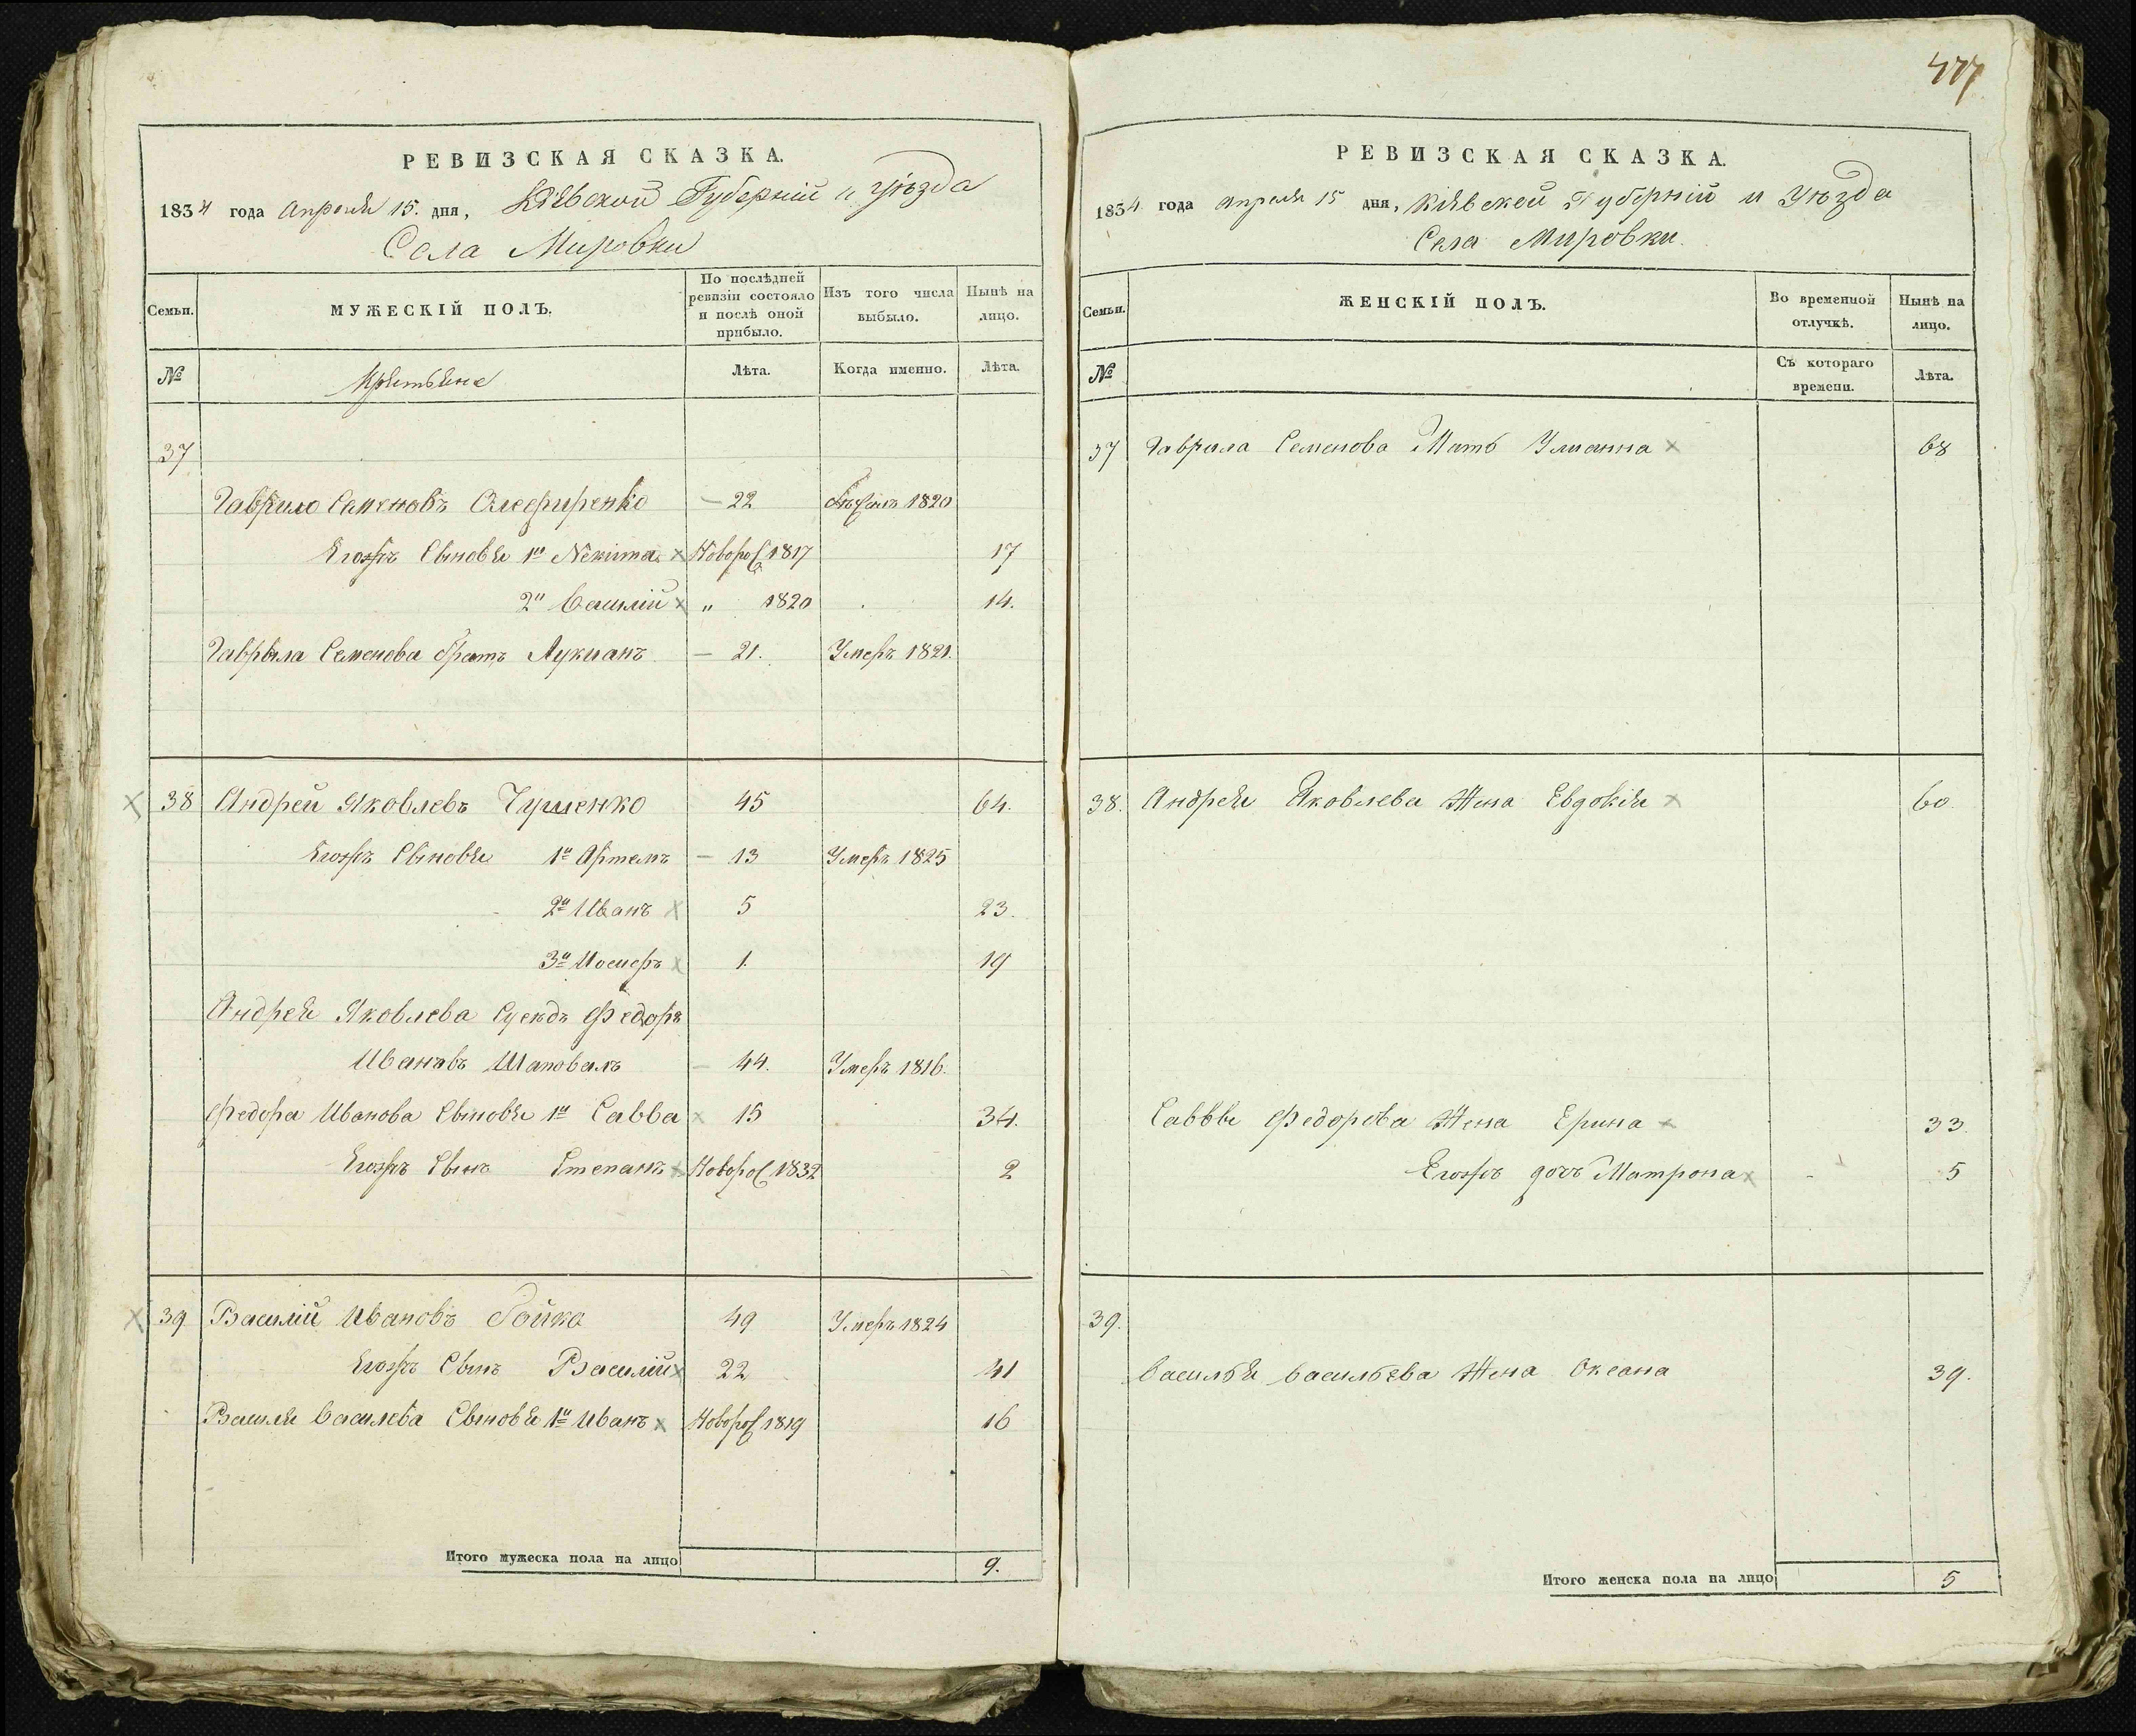 РЕВИЗСКАЯ СКАЗКА.
1834 года Апреля 15. дня, Кіевской Губерніи и уѣзда
Села Мировки
Семьи.
МУЖЕСКІЙ ПОЛЪ.
По послѣдней ревизіи состояло и послѣ оной прибыло.
Изъ того числа выбыло.
Нынѣ на лицо.
№
Крестьяне
Лѣта.
Когда именно.
Лѣта.
37
Гаврило Семеновъ Олефиренко — 22 1820
Егожъ Сыновья 1й Никита Новорож 1817 17
2й Василій „ 1820 14.
Гаврыла Семенова братъ Лукианъ — 21. Умеръ 1821.
38 Андрей Яковлевъ 45 64.
Егожъ Сыновья 1й Артемъ — 13 Умеръ 1825
2й Иванъ 5 23.
3й Иосифъ 1. 19
Андрея Яковлева Сусѣдъ Федоръ
Ивановъ Шаповалъ — 44. Умеръ 1816.
Федора Иванова Сыновья 1й Савва 15 34.
Егожъ Сынъ Степанъ Новорож 1832 2
39 Василій Ивановъ Бойко 49 Умеръ 1824
Егожъ Сынъ Василій 22 41
Василя Василева Сыновья 1й Иванъ Новорож 1819 16
Итого мужеска пола на лицо 9.
477
РЕВИЗСКАЯ СКАЗКА.
1834 года Апреля 15 дня, Кіевской Губерніи и Уѣзда
Села Мировки.
Семьи.
ЖЕНСКІЙ ПОЛЪ.
Во временной отлучкѣ.
Нынѣ на лицо.
№
Съ котораго времени.
Лѣта.
37 Гаврила Семенова Мать Ульянна 68
38. Андрея Яковлева Жена Евдокія 60.
Саввы Федорова Жена Ерина 33.
Егожъ дочъ Матрона 5
39.
Василья Васильева Жена Оксана 39.
Итого женска пола на лицо 5